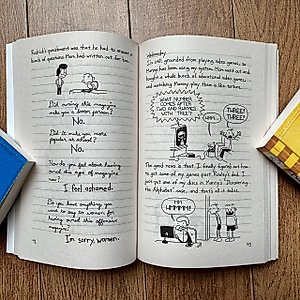 Rodrick's punishment was that he had to answer a
bunch of questions Mom had written out for him.
Did owning this magazine
make you a better person?
No.
Did it make you more
popular at school?
No.
How do you feel about having
owned this type of magazine
now?
I feel ashamed.
Do you have anything you
want to say to women for
having owned this offensive
magazine?
I'm sorry, women.
Wednesday
I'm still grounded from playing video games, so
Manny has been using my system. Mom went out and
bought a whole bunch of educational video games,
and watching Manny play them is like torture.
WHAT NUMBER
COMES AFTER
TWO AND RHYMES
WITH "TREE"?
UMM...
THREE!
THREE!
The good news is that I finally figured out how
to get some of my games past Rowley's dad. I
just put one of my discs in Manny's "Discovering
the Alphabet" case, and that's all it takes.